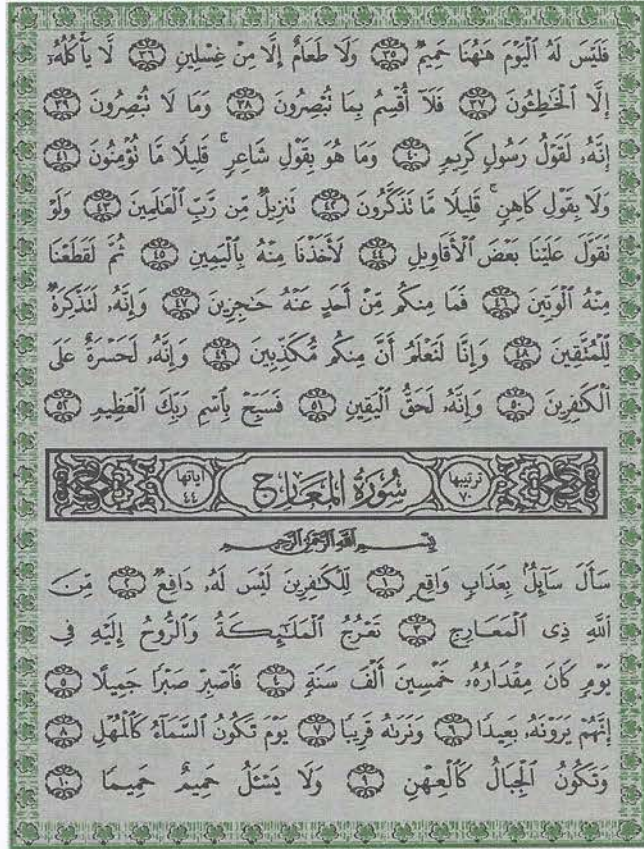 فَلَيْسَ لَهُ ٱلْيَوْمَ هَـٰهُنَا حَمِيمٌ ٣٥ وَلَا طَعَامٌ إِلَّا مِنْ غِسْلِينٍ ٣٦ لَّا يَأْكُلُهُۥٓ
إِلَّا ٱلْخَـٰطِـُٔونَ ٣٧ فَلَآ أُقْسِمُ بِمَا تُبْصِرُونَ ٣٨ وَمَا لَا تُبْصِرُونَ ٣٩
إِنَّهُۥ لَقَوْلُ رَسُولٍ كَرِيمٍ ٤٠ وَمَا هُوَ بِقَوْلِ شَاعِرٍ ۚ قَلِيلًا مَّا تُؤْمِنُونَ ٤١
وَلَا بِقَوْلِ كَاهِنٍ ۚ قَلِيلًا مَّا تَذَكَّرُونَ ٤٢ تَنزِيلٌ مِّن رَّبِّ ٱلْعَـٰلَمِينَ ٤٣ وَلَوْ
تَقَوَّلَ عَلَيْنَا بَعْضَ ٱلْأَقَاوِيلِ ٤٤ لَأَخَذْنَا مِنْهُ بِٱلْيَمِينِ ٤٥ ثُمَّ لَقَطَعْنَا
مِنْهُ ٱلْوَتِينَ ٤٦ فَمَا مِنكُم مِّنْ أَحَدٍ عَنْهُ حَـٰجِزِينَ ٤٧ وَإِنَّهُۥ لَتَذْكِرَةٌ
لِّلْمُتَّقِينَ ٤٨ وَإِنَّا لَنَعْلَمُ أَنَّ مِنكُم مُّكَذِّبِينَ ٤٩ وَإِنَّهُۥ لَحَسْرَةٌ عَلَى
ٱلْكَـٰفِرِينَ ٥٠ وَإِنَّهُۥ لَحَقُّ ٱلْيَقِينِ ٥١ فَسَبِّحْ بِٱسْمِ رَبِّكَ ٱلْعَظِيمِ ٥٢
ترتيبها ٧٠ سُورَةُ المَعَارِج آياتها ٤٤
بِسْمِ ٱللَّهِ ٱلرَّحْمَـٰنِ ٱلرَّحِيمِ
سَأَلَ سَآئِلٌۢ بِعَذَابٍ وَاقِعٍ ١ لِّلْكَـٰفِرِينَ لَيْسَ لَهُۥ دَافِعٌ ٢ مِّنَ
ٱللَّهِ ذِى ٱلْمَعَارِجِ ٣ تَعْرُجُ ٱلْمَلَـٰٓئِكَةُ وَٱلرُّوحُ إِلَيْهِ فِى
يَوْمٍ كَانَ مِقْدَارُهُۥ خَمْسِينَ أَلْفَ سَنَةٍ ٤ فَٱصْبِرْ صَبْرًا جَمِيلًا ٥
إِنَّهُمْ يَرَوْنَهُۥ بَعِيدًا ٦ وَنَرَىٰهُ قَرِيبًا ٧ يَوْمَ تَكُونُ ٱلسَّمَآءُ كَٱلْمُهْلِ ٨
وَتَكُونُ ٱلْجِبَالُ كَٱلْعِهْنِ ٩ وَلَا يَسْـَٔلُ حَمِيمٌ حَمِيمًا ١٠